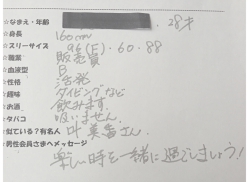 ☆なまえ・年齢 28才
☆身長 160cm
☆スリーサイズ 96(F)・60・88
☆職業 販売員
☆血液型 B
☆性格 活発
☆趣味 ダイビングなど
☆お酒 飲みます。
☆タバコ 吸いません。
☆似ている?有名人 叶 美香さん
☆男性会員さまへメッセージ
楽しい時を一緒に過ごしましょう!